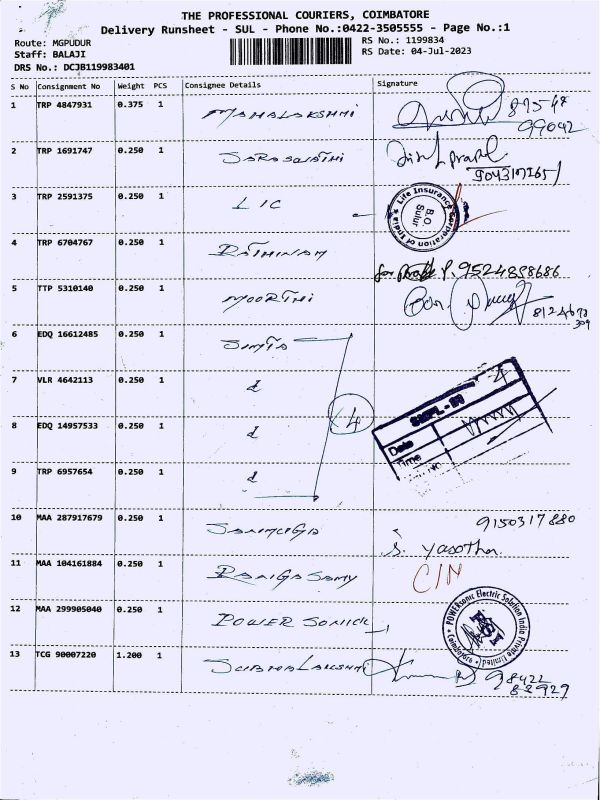 THE PROFESSIONAL COURIERS, COIMBATORE
Delivery Runsheet - SUL - Phone No.:0422-3505555 - Page No.:1
Route: MGPUDUR
Staff: BALAJI
DRS No.: DCJB119983401
RS No.: 1199834
RS Date: 04-Jul-2023
S No Consignment No Weight PCS Consignee Details Signature
1 TRP 4847931 0.375 1 MAHALAKSHMI 87547
99042
2 TRP 1691747 0.250 1 SARASWATHI
3 TRP 2591375 0.250 1 LIC Life Insurance Corporation of India B.O. Sulur
4 TRP 6704767 0.250 1 RATHINAM 9524898686
5 TTP 5310140 0.250 1 MOORTHI
6 EDQ 16612485 0.250 1 SIMTA
7 VLR 4642113 0.250 1 d 4
8 EDQ 14957533 0.250 1 d Date
9 TRP 6957654 0.250 1 d Time
10 MAA 287917679 0.250 1 9150317880
S. Yasotha
11 MAA 104161884 0.250 1 RANGASAMY C/N
12 MAA 299905040 0.250 1 POWER SONICK POWERsonic Electric Solution India Private Limited Coimbatore
13 TCG 90007220 1.200 1 SUBHALAKSHMI 98422
82927